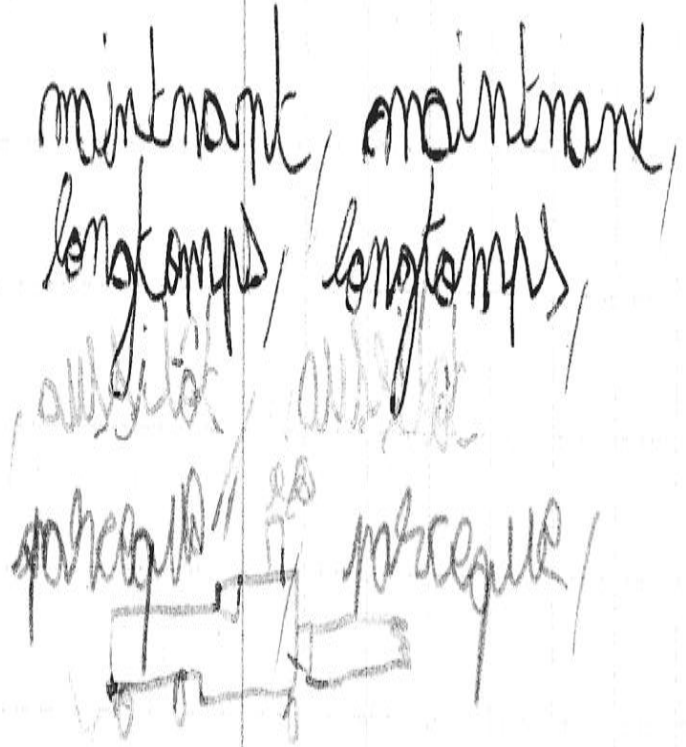 maintnant, maintnant,
longtomps, longtomps,
aussitôt, aussitôt
parceque, parceque,